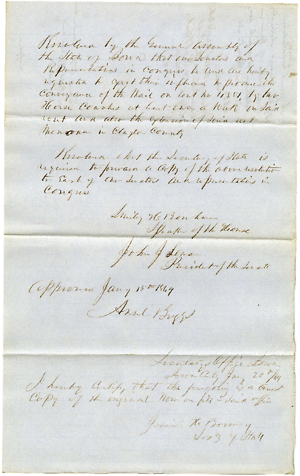 Resolved by the General Assembly of
the State of Iowa that our Senators and
Representatives in Congress be and are hereby
requested to use their influence to procure the
conveyance of the Mail on route no 1034 by two
Horse Coaches at least once a Week on said
rout and also the extension of said rout
in Clayton County
Resolved that the Secretary of State is
required to forward a Copy of the above resolution
to Each of our Senators and representatives in
Congress
Smiley H Bonham
Speaker of the House
John J Selman
President of the Senate
Approved Jany 15th 1849
Ansel Briggs
Secretarys Office Iowa
20th
I hereby Certify that the foregoing is a true
Copy of the original Now on file in said office
Josiah H Bonney
Secy of State